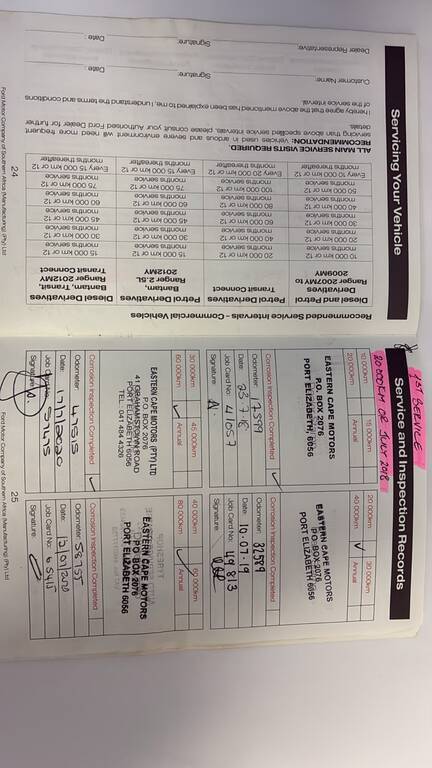 Servicing Your Vehicle
Recommended Service Intervals - Commercial Vehicles
Diesel and Petrol
Derivatives
Ranger to 2007MY
2009MY
Petrol Derivatives
Transit Connect
Petrol Derivatives
Bantam,
Ranger 2.5L
2012MY
Diesel Derivatives
Bantam, Transit,
Ranger 2012MY
Transit Connect
10 000 km or 12
months service
20 000 km or 12
months service
15 000 km or 12
months service
15 000 km or 12
months service
20 000 km or 12
months service
40 000 km or 12
months service
30 000 km or 12
months service
30 000 km or 12
months service
30 000 km or 12
months service
60 000 km or 12
months service
45 000 km or 12
months service
45 000 km or 12
months service
40 000 km or 12
months service
80 000 km or 12
months service
60 000 km or 12
months service
60 000 km or 12
months service
50 000 km or 12
months service
100 000 km or 12
months service
75 000 km or 12
months service
75 000 km or 12
months service
Every 10 000 km or 12
months thereafter
Every 20 000 km or 12
months thereafter
Every 15 000 km or 12
months thereafter
Every 15 000 km or 12
months thereafter
ALL MAIN SERVICE VISITS REQUIRED.
RECOMMENDATION: Vehicles used in arduous and severe environment will need more frequent
servicing than above specified service intervals, please consult your Authorised Ford Dealer for further
details
I hereby agree that the above mentioned has been explained to me, I understand the terms and conditions
of the service interval.
Customer Name: Signature: Date:
Dealer Representative: Signature: Date:
24
Ford Motor Company of Southern Africa (Manufacturing) (Pty) Ltd
1ST SERVICE
20 000KM OR JULY 2018
Service and Inspection Records
10 000km 15 000km
20 000km Annual
EASTERN CAPE MOTORS
P.O. BOX 2076
PORT ELIZABETH, 6056
Corrosion Inspection Completed
Odometer: 17399
Date: 23.7.18
Job Card No: 41057
Signature:
20 000km 30 000km
40 000km Annual
EASTERN CAPE MOTORS
P.O. BOX 2076
PORT ELIZABETH 6056
Corrosion Inspection Completed
Odometer: 32589
Date: 10.07.19
Job Card No: 49813
Signature:
30 000km 45 000km
60 000km Annual
EASTERN CAPE MOTORS (PTY) LTD
P.O. BOX 2076
41 GRAHAMSTOWN ROAD
PORT ELIZABETH 6056
TEL: 041 484 4326
Corrosion Inspection Completed
Odometer: 47515
Date: 17/1/2020
Job Card No:
Signature:
40 000km 60 000km
80 000km Annual
EASTERN CAPE MOTORS
P.O. BOX 2076
PORT ELIZABETH 6056
Corrosion Inspection Completed
Odometer: 58755
Date:
Job Card No:
Signature:
25
Ford Motor Company of Southern Africa (Manufacturing) (Pty) Ltd